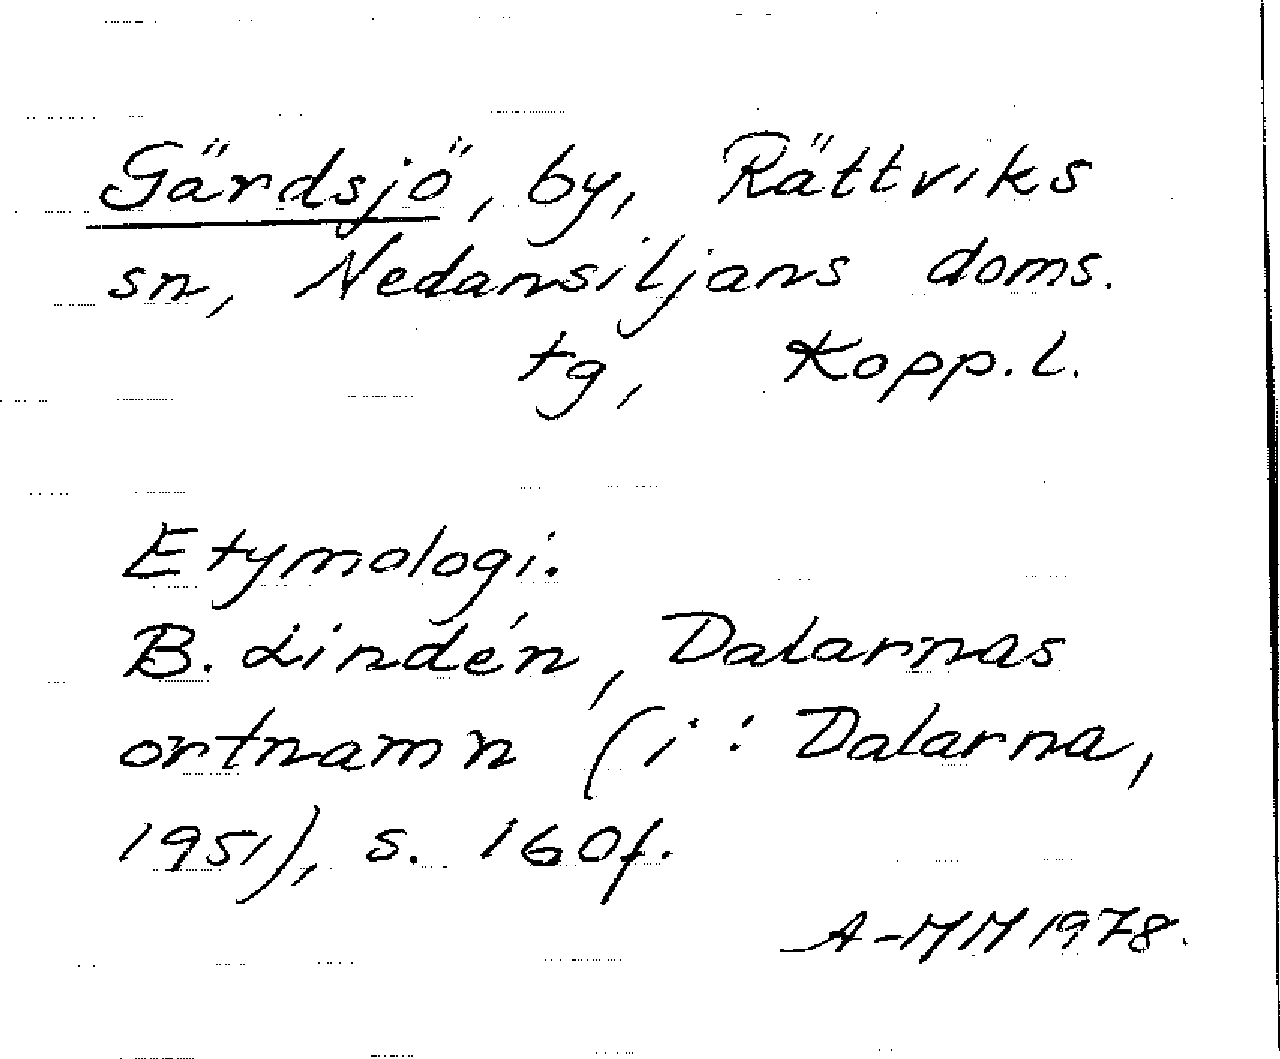 Gärdsjö, by, Rättviks
sn, Nedansiljans doms.
tg, Kopp.l.
Etymologi.
B. Lindén, Dalarnas
ortnamn (i: Dalarna,
1951), s. 160f.
A-MM 1978.